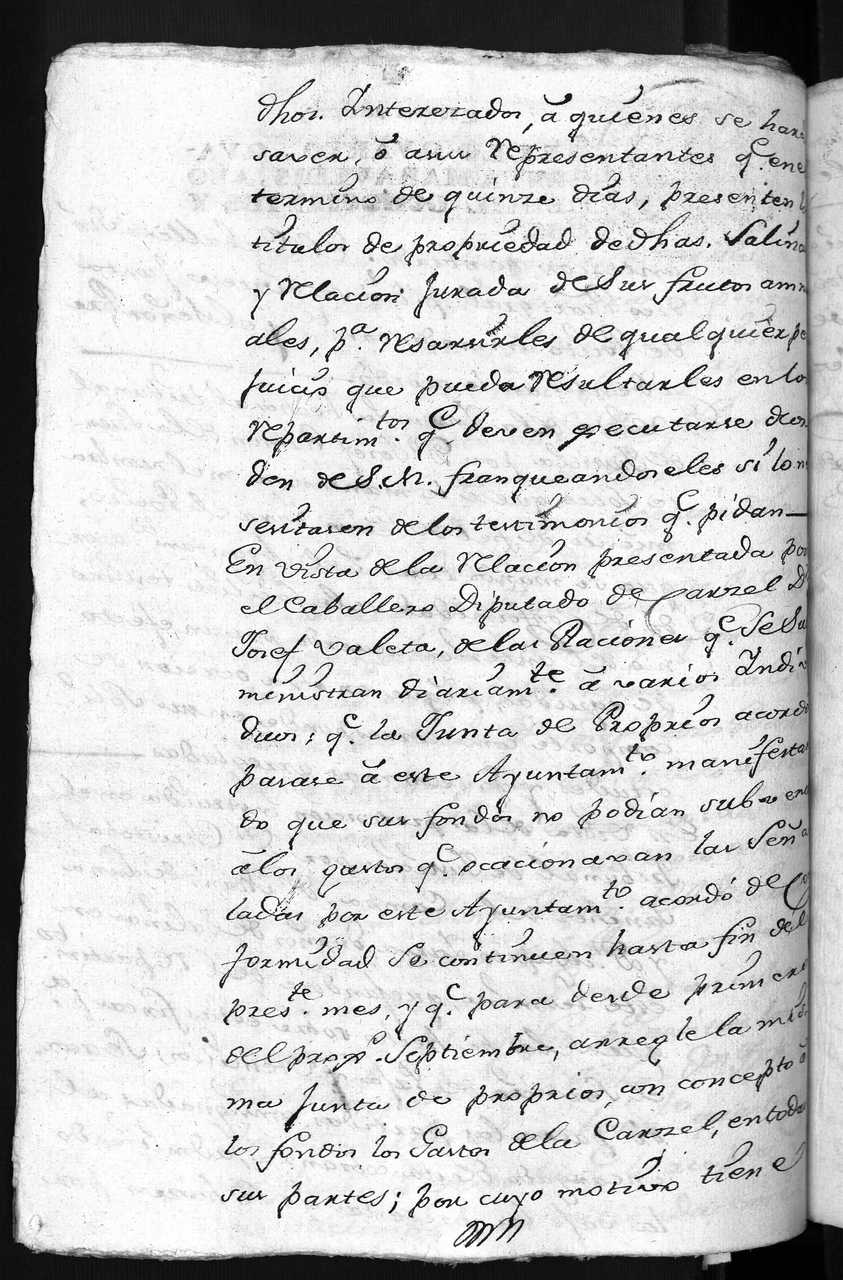 dhos. Interezados, â quienes se hara
saver, ô asus Representantes q.e en e
termino de quinze dias, presenten l
titulos de propiedad de dhas. Salina
y Relacion jurada de Sus frutos annu
ales, p.a resarsirles de qualquier pe
juicio que pueda Resultarles en los
Repartim.tos q.e deven executarse de or
den de S.M. franqueandoseles si lo ne
sesitasen delos testimonios q.e pidan—
En vista dela Relacion presentada por
el Caballero Diputado de Carzel D.n
Josef Valeta, delas Raciones q.e Se Su
ministran diariam.te â varios Indi
duos; q.e la Junta de Proprios acordo
pasase â este Ayuntam.to manifestan
do que sus fondos no podian subvenir
âlos gastos q.e ocacionavan las Seña
ladas por este Ayuntam.to acordó de Co
formidad Se continuen hasta fin del
pres.te mes, y q.e para desde primero
del prox.o Septiembre, arregle la mis
ma Junta de proprios, con concepto â
los fondos los Gastos dela Carzel, en todas
sus partes; por cuyo motivo tiene